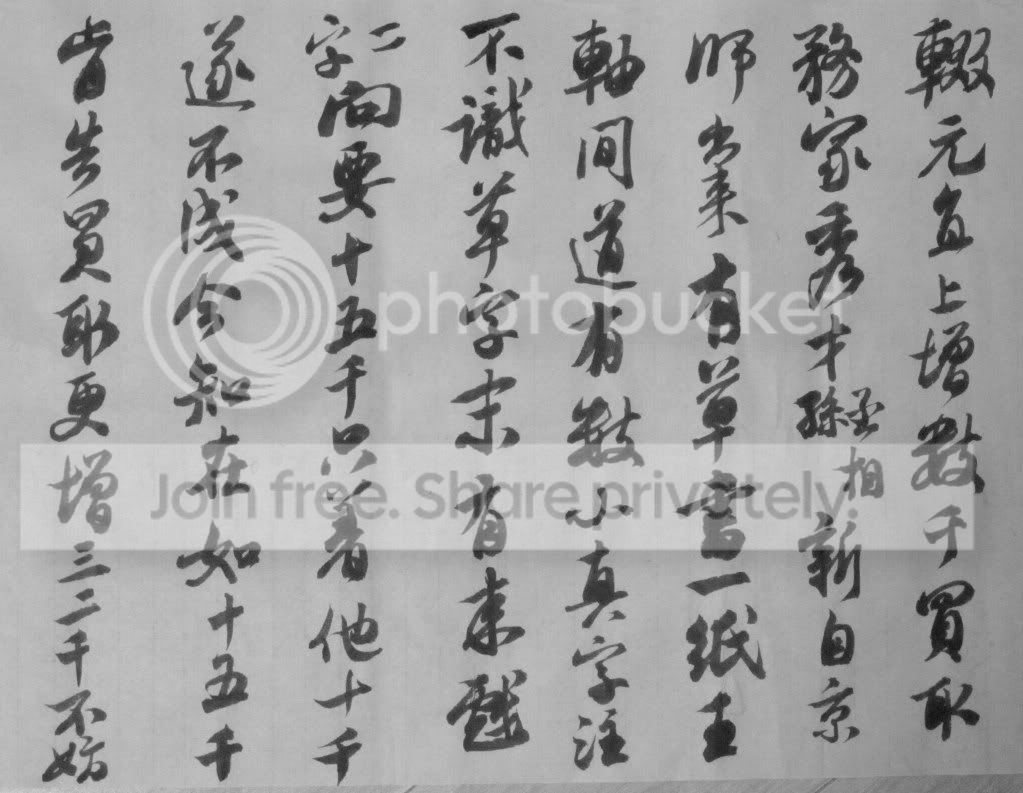 輟元直上增數千買取
務家秀才丞相孫新自京
師出来有草書一紙王
軸間道有數小真字注
不識草字末有来戲
二字向要十五千只著他十千
遂不成今知在如十五千
肯告買取更增三二千不妨
photobucket
Join free. Share privately.